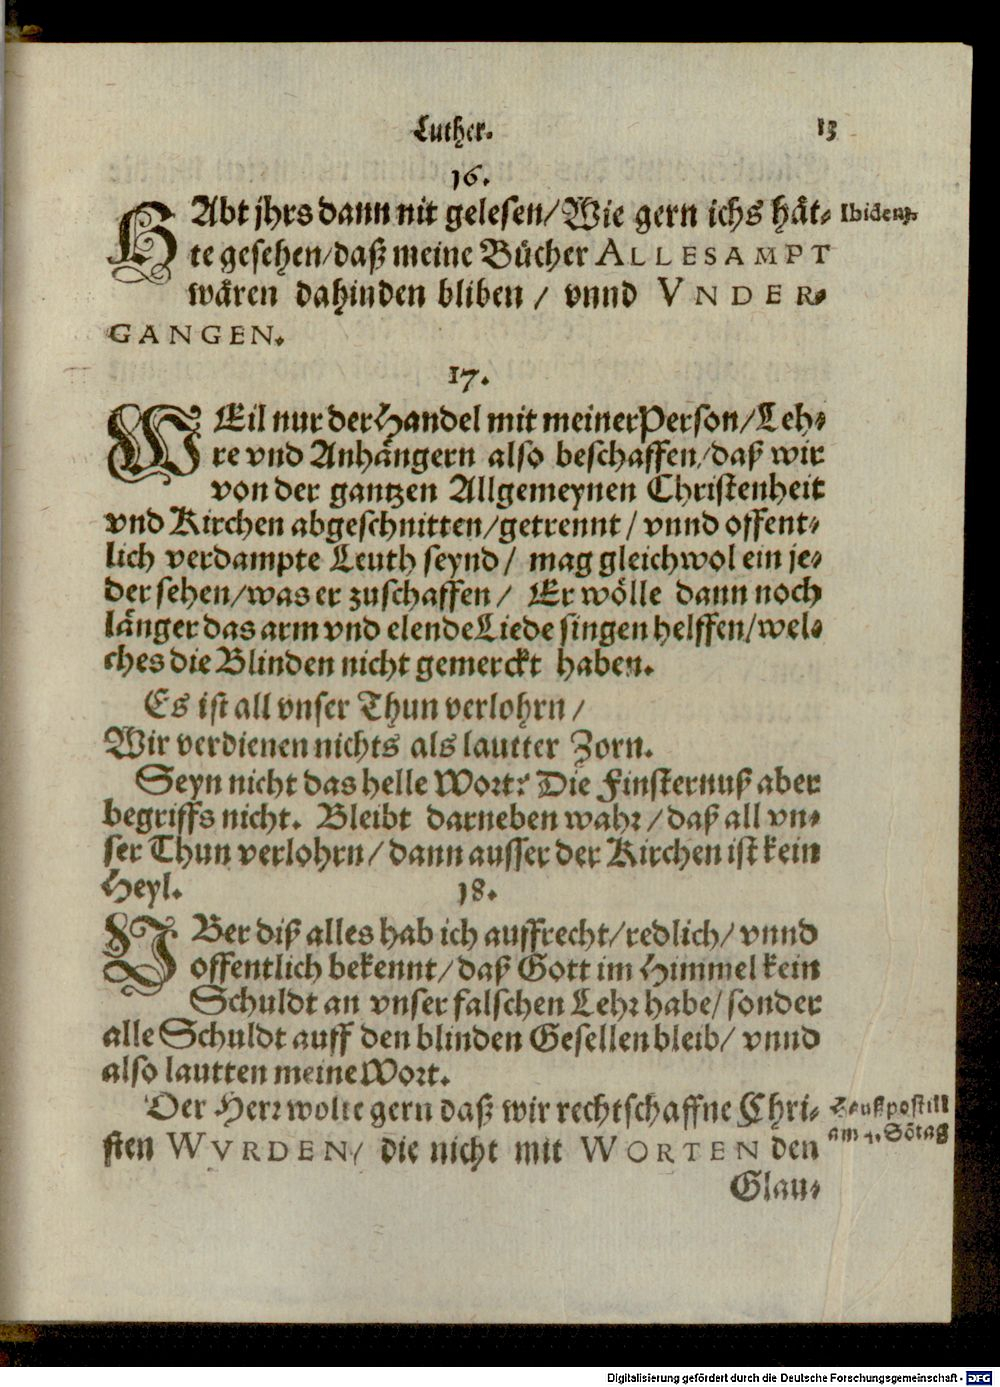 Luther. 13
16.
HAbt jhrs dann nit gelesen/ Wie gern ichs hät- Ibidem.
te gesehen/ daß meine Bücher ALLESAMPT
wären dahinden bliben / vnnd VNDER-
GANGEN.
17.
WEil nur der Handel mit meiner Person/ Leh-
re vnd Anhängern also beschaffen/ daß wir
von der gantzen Allgemeynen Christenheit
vnd Kirchen abgeschnitten/ getrennt / vnnd offent-
lich verdampte Leuth seynd / mag gleichwol ein je-
der sehen/ was er zuschaffen / Er wölle dann noch
länger das arm vnd elende Liede singen helffen/ wel-
ches die Blinden nicht gemerckt haben.
Es ist all vnser Thun verlohrn /
Wir verdienen nichts als lautter Zorn.
Seyn nicht das helle Wort? Die Finsternuß aber
begriffs nicht. Bleibt darneben wahr / daß all vn-
ser Thun verlohrn / dann ausser der Kirchen ist kein
Heyl. 18.
IBer diß alles hab ich auffrecht/ redlich/ vnnd
offentlich bekennt/ daß Gott im Himmel kein
Schuldt an vnser falschen Lehr habe/ sonder
alle Schuldt auff den blinden Gesellen bleib/ vnnd
also lautten meine Wort.
Der Herr wolte gern daß wir rechtschaffne Chri- Haußpostill
sten WVRDEN/ die nicht mit WORTEN den am 4. Sötag
Glau-
Digitalisierung gefördert durch die Deutsche Forschungsgemeinschaft - DFG